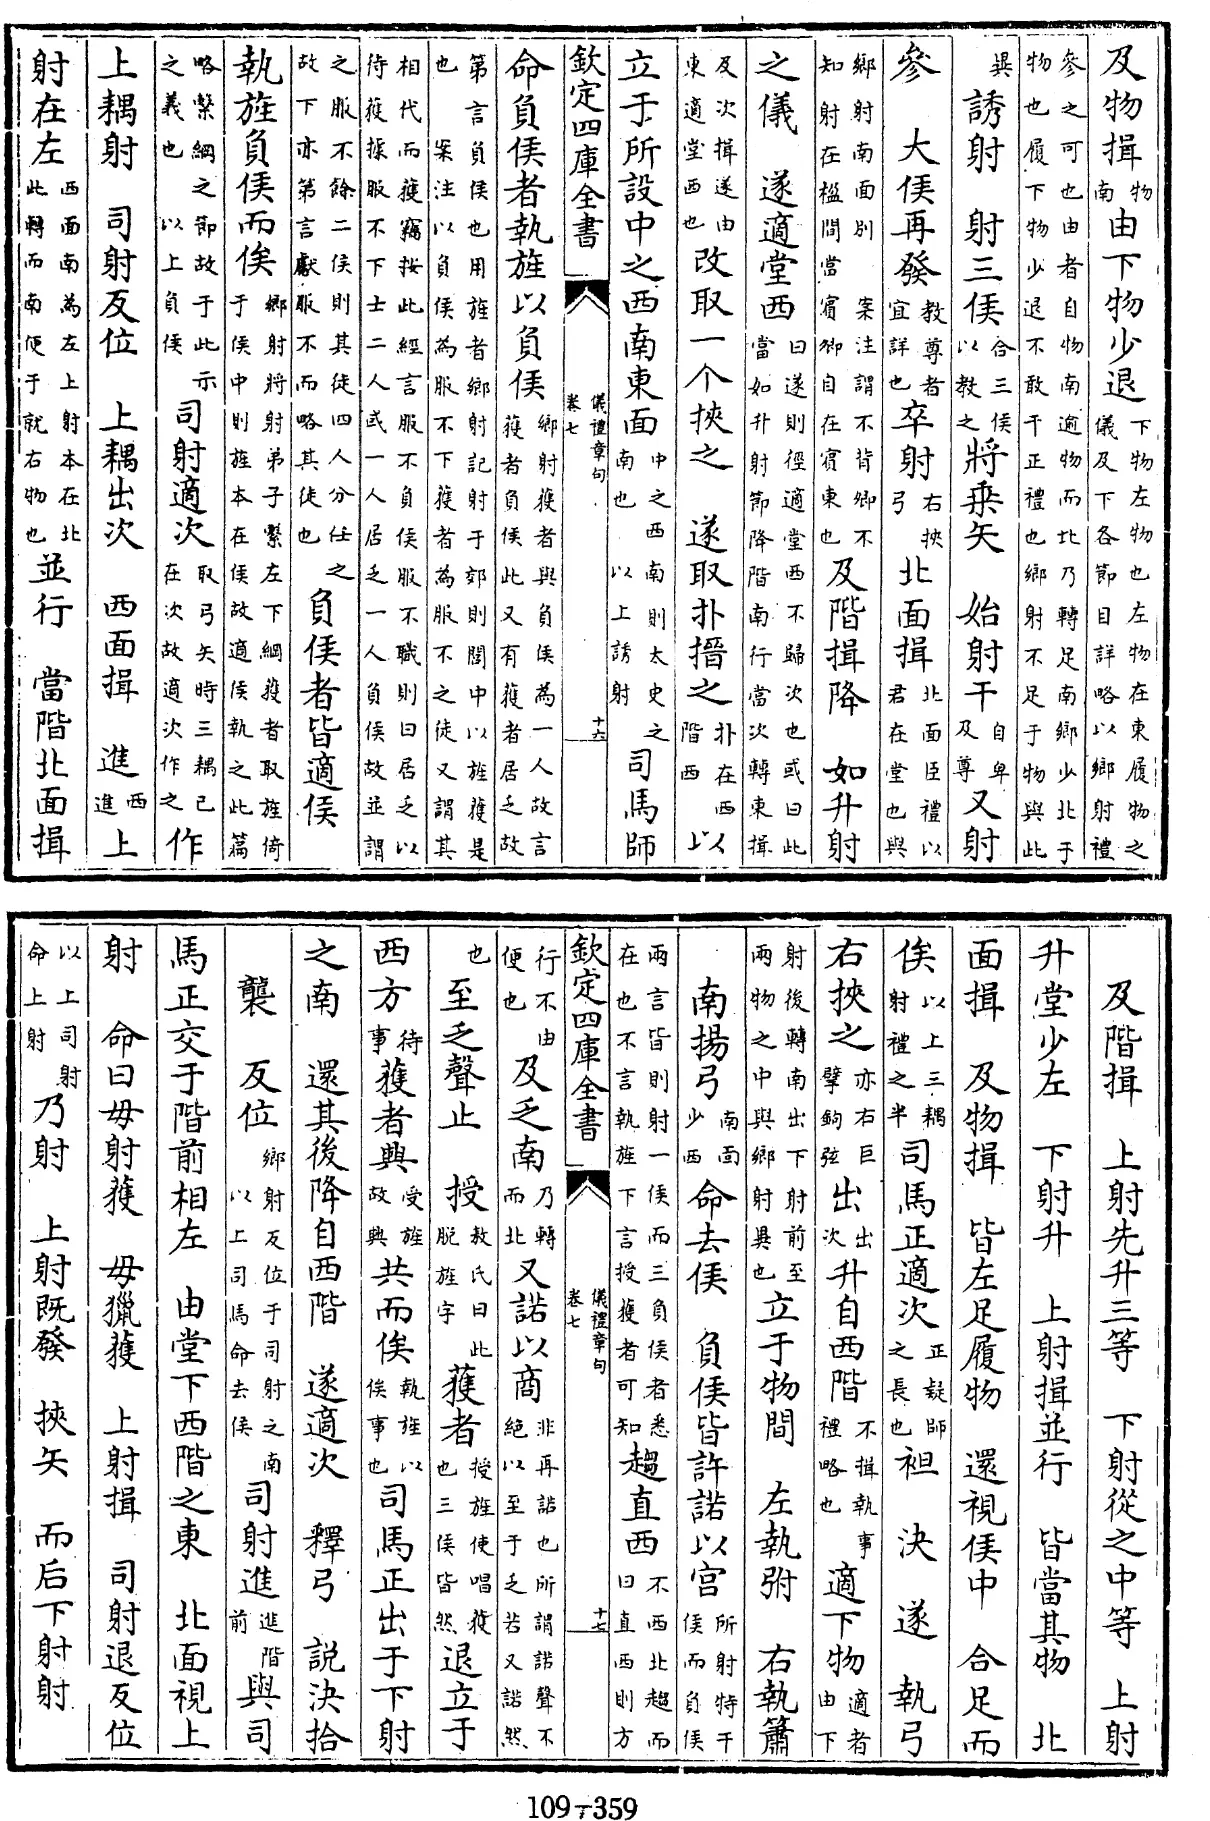 及物揖物南由下物少退下物左物也左物在東履物之儀及下各節目詳略以鄉射禮
參之可也由者自物南逾物而北乃轉足南鄉少北于物也履下物少退不敢干正禮也鄉射不足于物與此
異　誘射　射三侯合三侯以教之將乘矢　始射干自卑及尊又射
參　大侯再發教尊者宜詳也卒射右挾弓北面揖北面臣禮以君在堂也與
鄉射南面別　案注謂不背卿不知射在楹間當賓卿自在賓東也及階揖降　如升射
之儀　遂適堂西曰遂則徑適堂西不歸次也或曰此當如升射節降階南行當次轉東揖
及次揖遂由東適堂西也改取一个挾之　遂取扑搢之扑在西階西以
立于所設中之西南東面中之西南則太史之南也　以上誘射司馬師
欽定四庫全書　儀禮章句　卷七　十六
命負侯者執旌以負侯鄉射獲者與負侯為一人故言獲者負侯此又有獲者居乏故
第言負侯也用旌者鄉射記射于郊則閭中以旌獲是也　案注以負侯為服不下獲者為服不之徒又謂其
相代而獲竊按此經言服不負侯服不職則曰居乏以待獲據服不下士二人或一人居乏一人負侯故並謂
之服不餘二侯則其徒四人分任之故下亦第言獻服不而略其徒也　負侯者皆適侯
執旌負侯而俟鄉射將射弟子繫左下綱獲者取旌倚于侯中則旌本在侯故適侯執之此篇
略繫綱之節故于此示之義也　以上負侯　司射適次取弓矢時三耦已在次故適次作之作
上耦射　司射反位　上耦出次　西面揖　進西進上
射在左西面南為左上射本在北此轉而南便于就右物也並行　當階北面揖
及階揖　上射先升三等　下射從之中等　上射
升堂少左　下射升　上射揖並行　皆當其物　北
面揖　及物揖　皆左足履物　還視侯中　合足而
俟以上三耦射禮之半司馬正適次正疑師之長也袒　決　遂　執弓
右挾之亦右巨擘鉤弦出出次升自西階不揖執事禮略也　適下物適者由下
射後轉南出下射前至兩物之中與鄉射異也立于物間　左執弣　右執簫
南揚弓南面少西命去侯　負侯皆許諾以宮所射特干侯而負侯
兩言皆則射一侯而三負侯者悉在也不言執旌下言授獲者可知趨直西不西北趨而曰直西則方
欽定四庫全書　儀禮章句　卷七　十七
行不由便也　及乏南乃轉而北又諾以商非再諾也所謂諾聲不絕以至于乏若又諾然
也　至乏聲止　授敖氏曰此脫旌字獲者授旌使唱獲也三侯皆然退立于
西方待事獲者興受旌故興共而俟執旌以俟事也司馬正出于下射
之南　還其後降自西階　遂適次　釋弓　說決拾
襲　反位鄉射反位于司射之南以上司馬命去侯司射進進階前與司
馬正交于階前相左　由堂下西階之東　北面視上
射　命曰毋射獲　毋獵獲　上射揖　司射退反位
以上司射命上射乃射　上射既發　挾矢　而后下射射
109-359